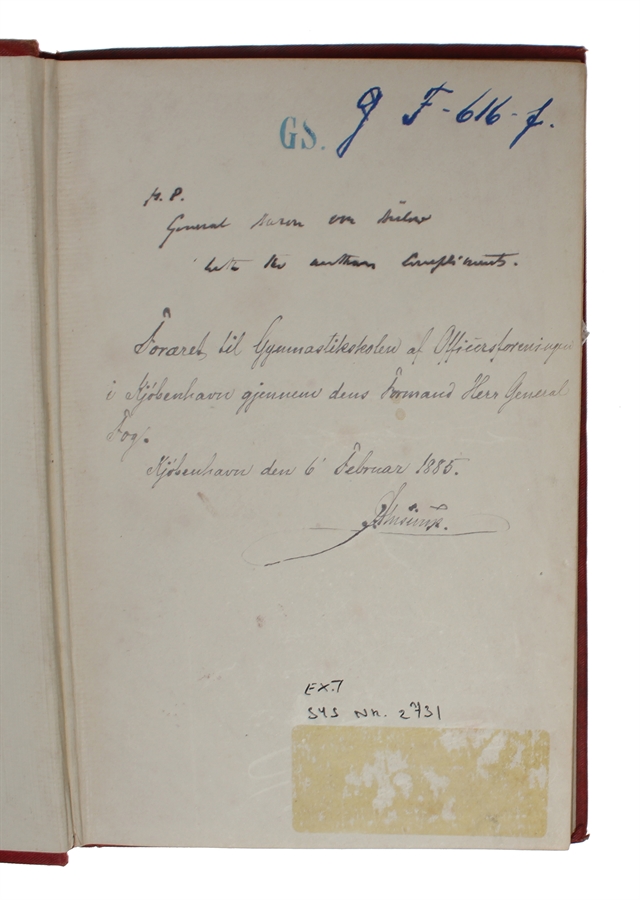 GS. F-616-f.
H. P.
General Baron von
with the authors Compliments.
Foræret til Gymnastikskolen af Officersforeningen
i Kjøbenhavn gjennem dens Formand Herr General
Fog.
Kjøbenhavn den 6' Februar 1885.
EX.1
SYS NR. 2731